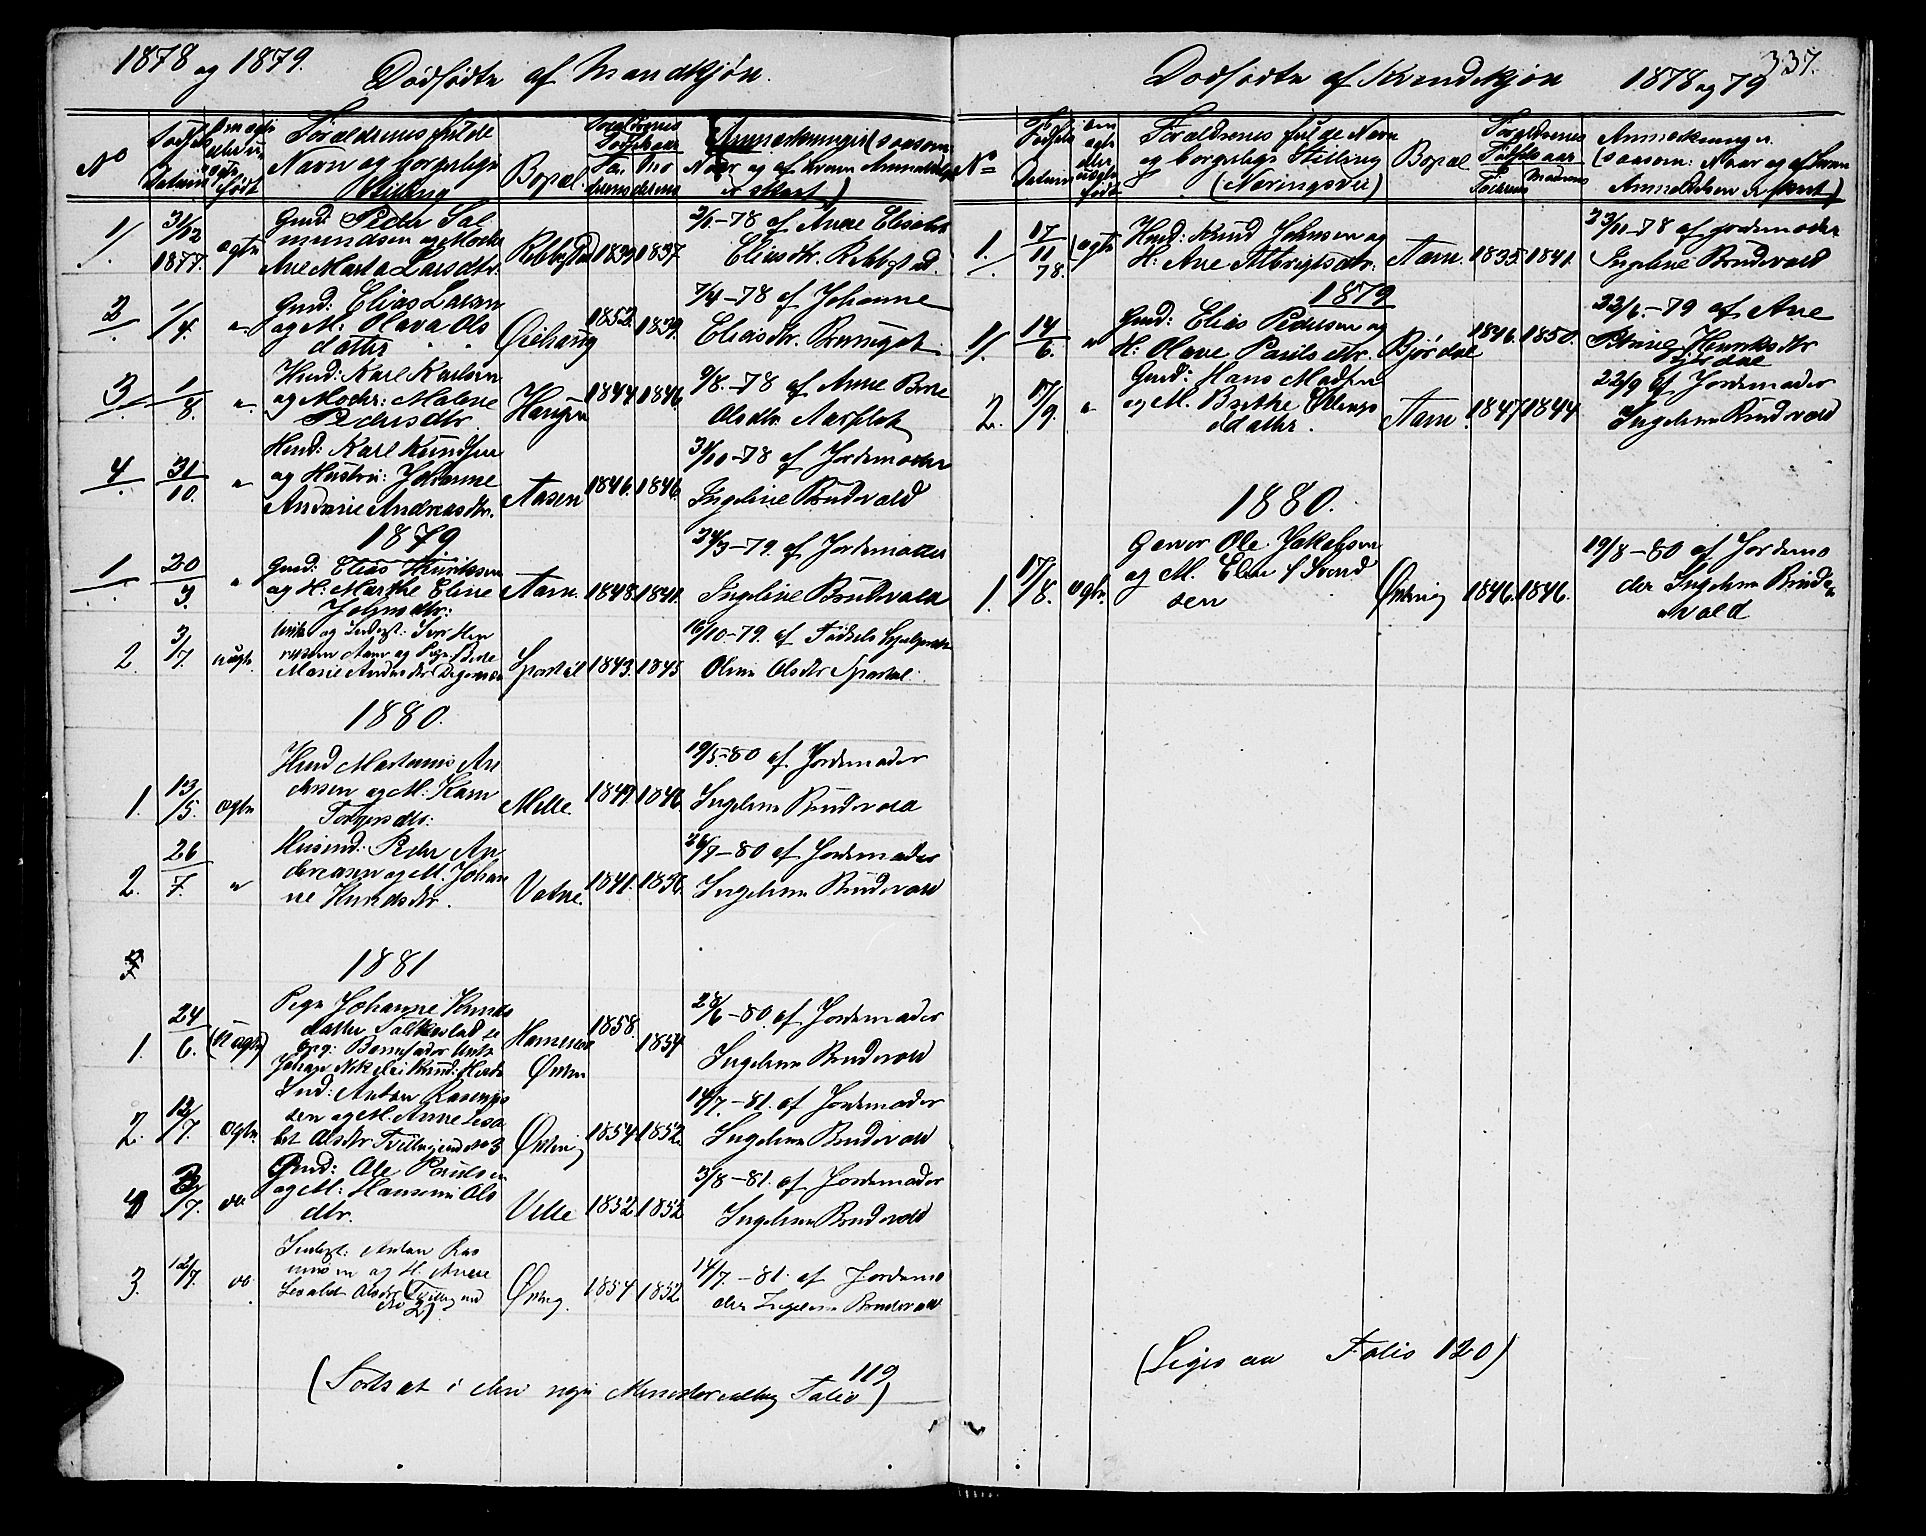 1878 og 1879.
Dødfødte af Mandkjøn.
No
Fødsels Datum
om ægte eller uægte født
Forældrenes fulde
Navn og borgerlige
Stilling
Bopæl
Forældrenes
Fødselsaar
Faderens Moderens
Anmærkninger (saasom
Naar og af hvem Anmeldelse
er skeet)
1/. 31/12 1877. ægte
Gmd: Peder Sal
mundsen og Moder
Ane Marta Larsdtr. 1839 1837.
2/1-78 af Anne Elisabet
Eliasdtr.
2/. 1/4. "
Gmd: Elias Larsen
og M: Olava Ols
datter Øiehaug 1852. 1839.
7/4-78 af Johanne
Eliasdtr.
3/. 1/8. "
Husd: Karl Karlsen
og Moder: Malene
Pedersdtr. Haugen 1844. 1846.
9/8.-78 af Anne
Olsdtr. Aarflot
4/. 31/10. "
Husd: Karl Knudsen
og Hustru: Johanne
Andrine Andreasdtr. Aasen 1846. 1846.
31/10-78 af Jordemoder
Ingeline Brudevold
1879
1/. 20/3. "
Gmd: Elias Henriksen
og H: Marthe Eline
Johnsdtr: Aam. 1848. 1841.
24/3-79. af Jordemoder
Ingeline Brudevold
2. 3/7. uægte.
Marie 1843. 1845
16/10-79. af Fødselshjælperske
Oline Olsdtr
1880.
1. 13/5. ægte
Husd Martinus An
dersen og M: Karen
Melle. 1847. 1846.
19/5.-80 af Jordemoder
Ingeline Brudevold
2. 26/7. "
Husmd: Peder An
dreasen og M. Johan
ne Knudsdtr. Vatne. 1841. 1856.
26/9-80 af Jordemoder
Ingeline Brudevold
1881
1. 24/6. (uægte)
Pige Johanne Knuds
datter
Barnefader
Johan Nikolai 1858. 1854
28/6-80. af Jordemoder
Ingeline Brudevold
2. 12/7. ægte.
Ind: Anton Rasmus
sen og M. Anne Lisa
bet Olsdtr Tvilling med No 3 Ørsten 1854. 1852.
14/7.-81. af Jordemoder
Ingeline Brudevold
4 /7. do
Gmd: Ole Paulsen
og M: Hansine Ols
dtr. Velle 1852. 1852
3/8-81. af Jordemoder
Ingeline Brudevold
3. 12/7. do.
Inderst: Anton Ras
musen og H. Anne
Lisabet Olsdtr (Tvilling med
No 2). 1854 1852.
14/7.-81. af Jordemo
der Ingeline Brudevold
(Fortsat i den nye Ministerialbog Folio 119)
337.
Dødfødte af Kvindekjøn 1878 og 79
No
Fødsels Datum
om ægte eller uægte født
Forældrenes fulde Navn
og borgerlige Stilling
(Næringsvei)
Bopæl
Forældrenes
Fødselsaar
Faderens Moderens
Anmærkninger
(saasom: Naar og af hvem
Anmeldelsen er skeet)
1/. 17/11 78. (ægte
Husd: Knud Johnsen og
H: Ane Albrigtsdtr: Aam. 1835. 1841.
23/11-78 af Jordemoder
Ingeline Brudevold
1879
1/. 14/6. "
Gmd: Elias Pedersen og
H: Olave Paulsdtr. Bjørdal 1846. 1850.
22/6.-79 af Ane
Henriksdtr
Bjørdal
2. 17/9. "
Gmd: Hans Madsen
og M. Berthe Ellings
datter. Aam. 1847. 1844
22/9 af Jordemoder
Ingeline Brudevold
1880.
1. 17/8. ægte.
Garver Ole Jakobsen
og M. Eline f Svend
sen Ørsten 1846. 1846.
19/8-80 af Jordemo
der Ingeline Brude
vold
(Ligesaa Folio 120)